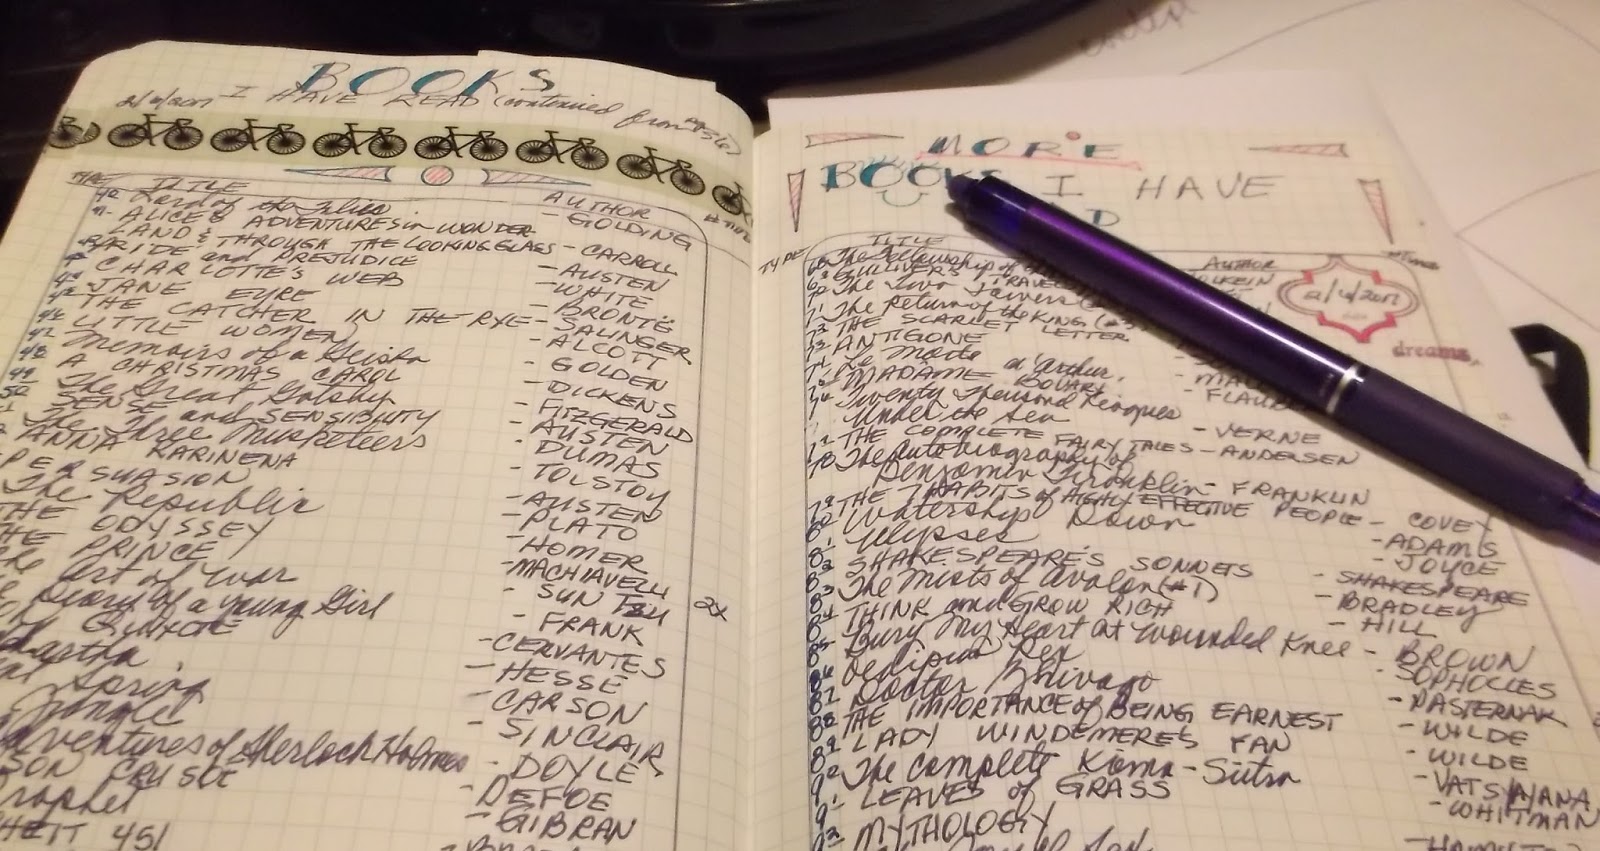 BOOKS
2/6/2017 I HAVE READ (continued from
TITLE
AUTHOR
Lord of the Flies - GOLDING
ALICE'S ADVENTURES in WONDER
LAND & THROUGH THE LOOKING GLASS - CARROLL
PRIDE and PREJUDICE - AUSTEN
CHARLOTTE'S WEB - WHITE
JANE EYRE - BRONTË
THE CATCHER IN THE RYE - SALINGER
LITTLE WOMEN - ALCOTT
Memoirs of a Geisha - GOLDEN
A CHRISTMAS CAROL - DICKENS
The Great Gatsby - FITZGERALD
SENSE and SENSIBILITY - AUSTEN
The Three Musketeers - DUMAS
ANNA KARINENA - TOLSTOY
PERSUASION - AUSTEN
The Republic - PLATO
THE ODYSSEY - HOMER
PRINCE - MACHIAVELLI
Art of War - SUN TZU 2X
Diary of a young Girl - FRANK
QUIXOTE - CERVANTES
- HESSE
Spring - CARSON
Jungle - SINCLAIR
Adventures of Sherlock Holmes - DOYLE
SON CRUSOE - DEFOE
Prophet - GIBRAN
451
MORE
BOOKS I HAVE
AD
TYPE TITLE AUTHOR # Times
2/6/2017
dreams,
68 The Fellowship of
69 GULLIVER'S TRAVELS
70 The Two Towers
71 The Return of the KING
72 THE SCARLET LETTER
73 ANTIGONE
74 Le Morte d'Arthur
75 MADAME BOVARY - FLAUBE
76 Twenty Thousand Leagues
Under the Sea - VERNE
77 THE COMPLETE FAIRY TALES - ANDERSEN
78 The Autobiography of
Benjamin Franklin - FRANKLIN
79 THE 7 HABITS of HIGHLY EFFECTIVE PEOPLE - COVEY
80 Watership Down - ADAMS
81 Ulysses - JOYCE
82 SHAKESPEARE'S SONNETS - SHAKESPEARE
83 The Mists of Avalon (#1) - BRADLEY
84 THINK and GROW RICH - HILL
85 Bury My Heart at Wounded Knee - BROWN
86 Oedipus Rex - SOPHOCLES
87 Doctor Zhivago - PASTERNAK
88 THE IMPORTANCE of BEING EARNEST - WILDE
89 LADY WINDEMERE'S FAN - WILDE
90 The Complete Kama-Sutra - VATSYAYANA
91 LEAVES of GRASS - WHITMAN
MYTHOLOGY